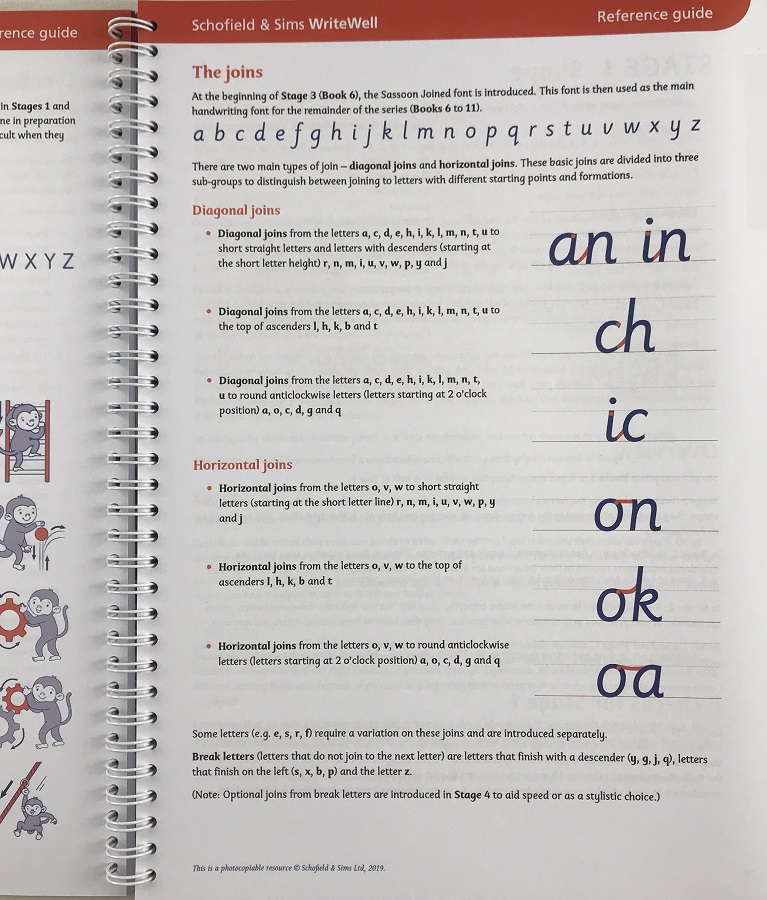 rence guide
in Stages 1 and
ne in preparation
cult when they
W X Y Z
Schofield & Sims WriteWell
Reference guide
The joins
At the beginning of Stage 3 (Book 6), the Sassoon Joined font is introduced. This font is then used as the main
handwriting font for the remainder of the series (Books 6 to 11).
a b c d e f g h i j k l m n o p q r s t u v w x y z
There are two main types of join – diagonal joins and horizontal joins. These basic joins are divided into three
sub-groups to distinguish between joining to letters with different starting points and formations.
Diagonal joins
• Diagonal joins from the letters a, c, d, e, h, i, k, l, m, n, t, u to
short straight letters and letters with descenders (starting at
the short letter height) r, n, m, i, u, v, w, p, y and j
an in
• Diagonal joins from the letters a, c, d, e, h, i, k, l, m, n, t, u to
the top of ascenders l, h, k, b and t
ch
• Diagonal joins from the letters a, c, d, e, h, i, k, l, m, n, t,
u to round anticlockwise letters (letters starting at 2 o'clock
position) a, o, c, d, g and q
ic
Horizontal joins
• Horizontal joins from the letters o, v, w to short straight
letters (starting at the short letter line) r, n, m, i, u, v, w, p, y
and j
on
• Horizontal joins from the letters o, v, w to the top of
ascenders l, h, k, b and t
ok
• Horizontal joins from the letters o, v, w to round anticlockwise
letters (letters starting at 2 o'clock position) a, o, c, d, g and q
oa
Some letters (e.g. e, s, r, f) require a variation on these joins and are introduced separately.
Break letters (letters that do not join to the next letter) are letters that finish with a descender (y, g, j, q), letters
that finish on the left (s, x, b, p) and the letter z.
(Note: Optional joins from break letters are introduced in Stage 4 to aid speed or as a stylistic choice.)
This is a photocopiable resource © Schofield & Sims Ltd, 2019.